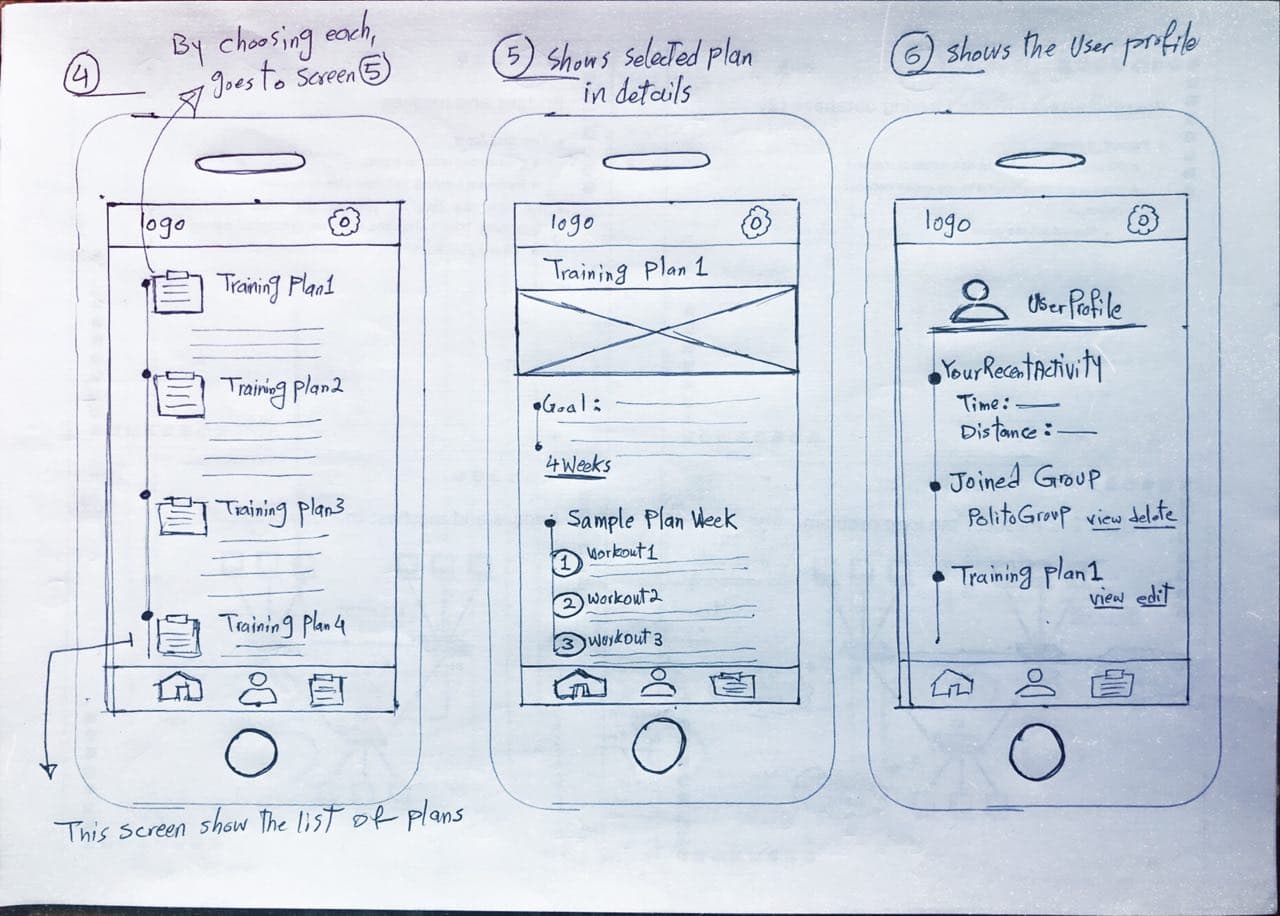 4
By choosing each,
goes to screen 5
logo
Training Plan1
Training plan2
Training plan3
Training Plan 4
This screen show the list of plans
5 Shows selected plan
in details
logo
Training Plan 1
Goal:
4 Weeks
Sample Plan Week
1 Workout1
2 Workout2
3 Workout 3
6 Shows the User profile
logo
User Profile
Your Recent Activity
Time:
Distance:
Joined Group
Polito Group view delate
Training plan1
view edit